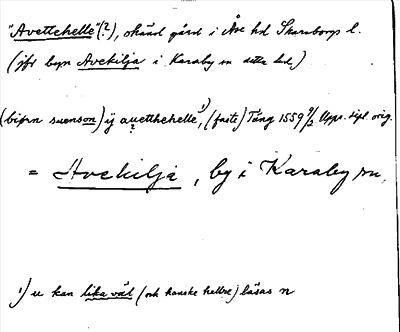 "Avettehelle"(?), okänd gård i Åse hd Skaraborgs l.
(jfr byn Avekilja i Karaby sn detta hd)
(biörn suenson) ij auetthehelle,¹) (faste) Tång 1559 9/2 Upps. dipl. orig.
?
= Avekilja, by i Karaby sn.
¹) u kan lika väl (och kanske hellre) läsas n